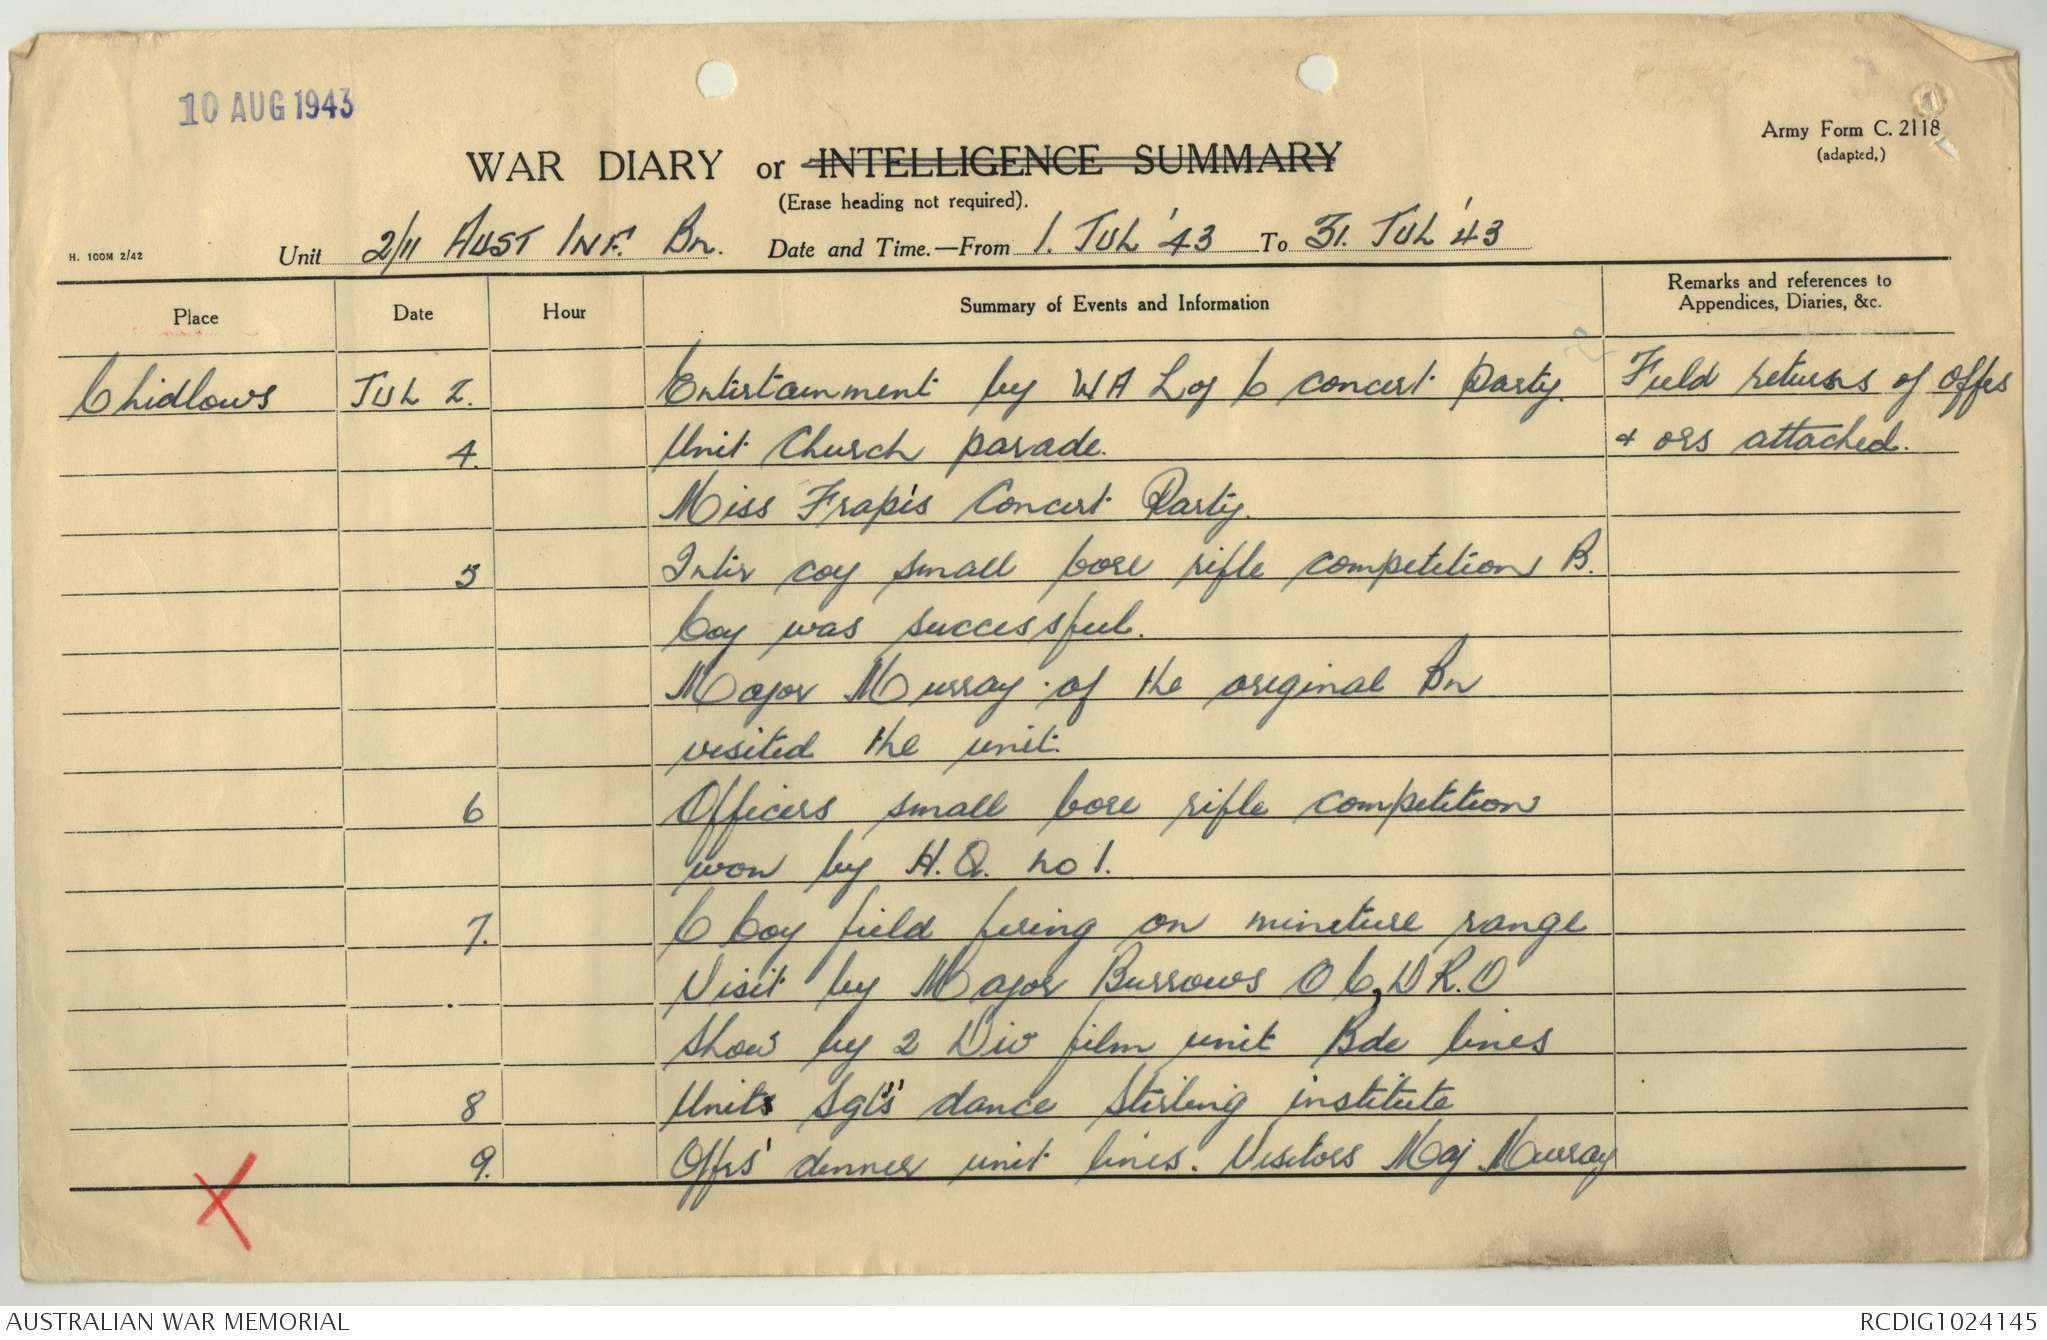 10 AUG 1943
Army Form C. 2118
(adapted,)
WAR DIARY or INTELLIGENCE SUMMARY
(Erase heading not required).
H. 100M 2/42
Unit 2/11 AUST INF. Bn. Date and Time.—From 1. JUL '43 To 31. JUL '43
Place Date Hour Summary of Events and Information Remarks and references to Appendices, Diaries, &c.
Chidlows JUL 2. Entertainment by WA L of C concert Party. Field returns of offrs
4. Unit Church parade. & ors attached.
Miss Frapis Concert Party.
5 Inter coy small bore rifle competition B.
Coy was successful.
Major Murray of the original Bn
visited the unit.
6 Officers small bore rifle competition
won by H.Q. no 1.
7. C Coy field firing on mineture range
Visit by Major Burrows O C, D R.O
Show by 2 Div film unit Bde lines
8 Units Sgts' dance Stirling institute
9. Offrs' dinner unit lines. Visitors Maj Murray
AUSTRALIAN WAR MEMORIAL
RCDIG1024145